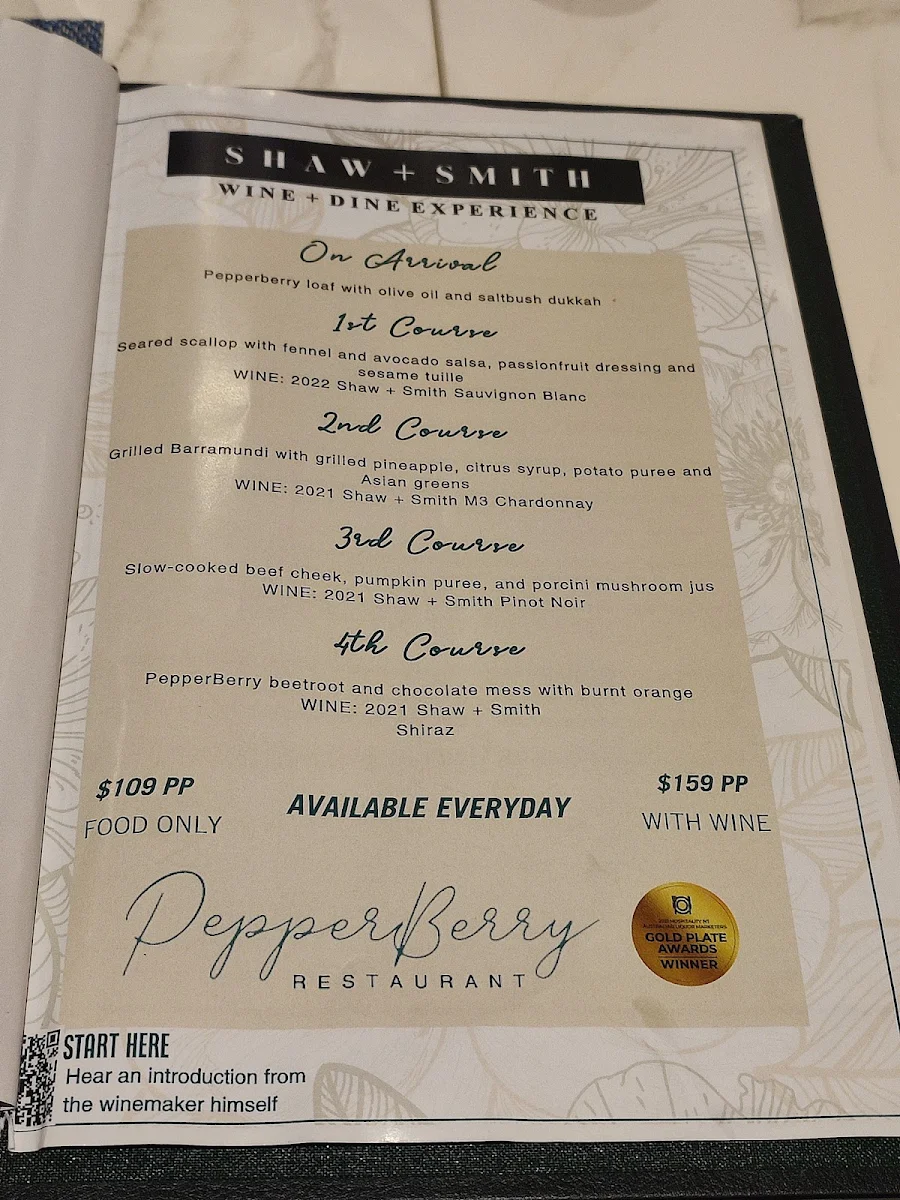 SHAW + SMITH
WINE + DINE EXPERIENCE
On Arrival
Pepperberry loaf with olive oil and saltbush dukkah
1st Course
Seared scallop with fennel and avocado salsa, passionfruit dressing and
sesame tuille
WINE: 2022 Shaw + Smith Sauvignon Blanc
2nd Course
Grilled Barramundi with grilled pineapple, citrus syrup, potato puree and
Asian greens
WINE: 2021 Shaw + Smith M3 Chardonnay
3rd Course
Slow-cooked beef cheek, pumpkin puree, and porcini mushroom jus
WINE: 2021 Shaw + Smith Pinot Noir
4th Course
PepperBerry beetroot and chocolate mess with burnt orange
WINE: 2021 Shaw + Smith
Shiraz
$109 PP
FOOD ONLY
AVAILABLE EVERYDAY
$159 PP
WITH WINE
PepperBerry
RESTAURANT
HOSPITALITY NT
AUSTRALIAN LIQUOR MARKETERS
GOLD PLATE
AWARDS
WINNER
START HERE
Hear an introduction from
the winemaker himself